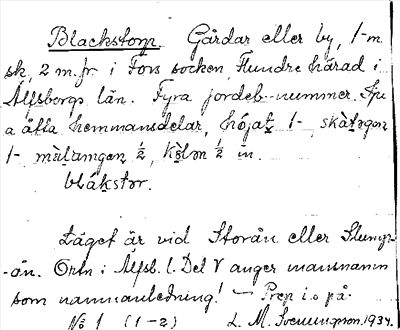 Blackstorp. Gårdar eller by, 1 m.
sk, 2 m. fr. i Fors socken, Flundre härad i
Älfsborgs län. Fyra jordeb. nummer.
a äfta hemmansdelar, höjat 1-, skàtegen
1-, mùlamgen ½, kolon ½ m.
blákstor.
Läget är vid Storån eller Slump-
-ån. Ortn i Älfsb. l. Del V anger mansnamn
som namnanledning! — Prep i. o på.
No 1 (1-2) L. M. Svenungson. 1934.